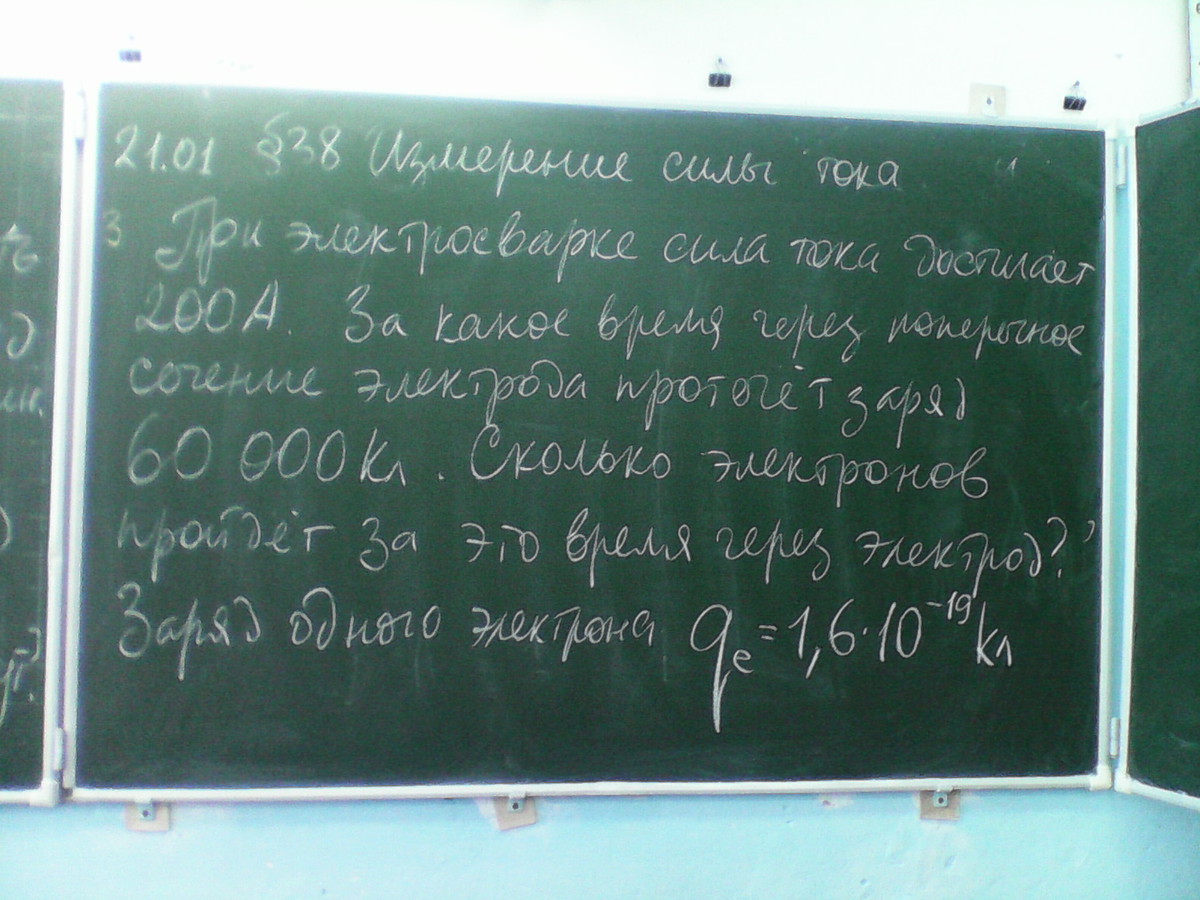 21.01 §38 Измерение силы тока
3 При электросварке сила тока достигает
200А. За какое время через поперечное
сечение электрода проточёт заряд
60 000Кл. Сколько электронов
пройдёт за это время через электрод?
Заряд одного электрона qe=1,6·10⁻¹⁹Кл